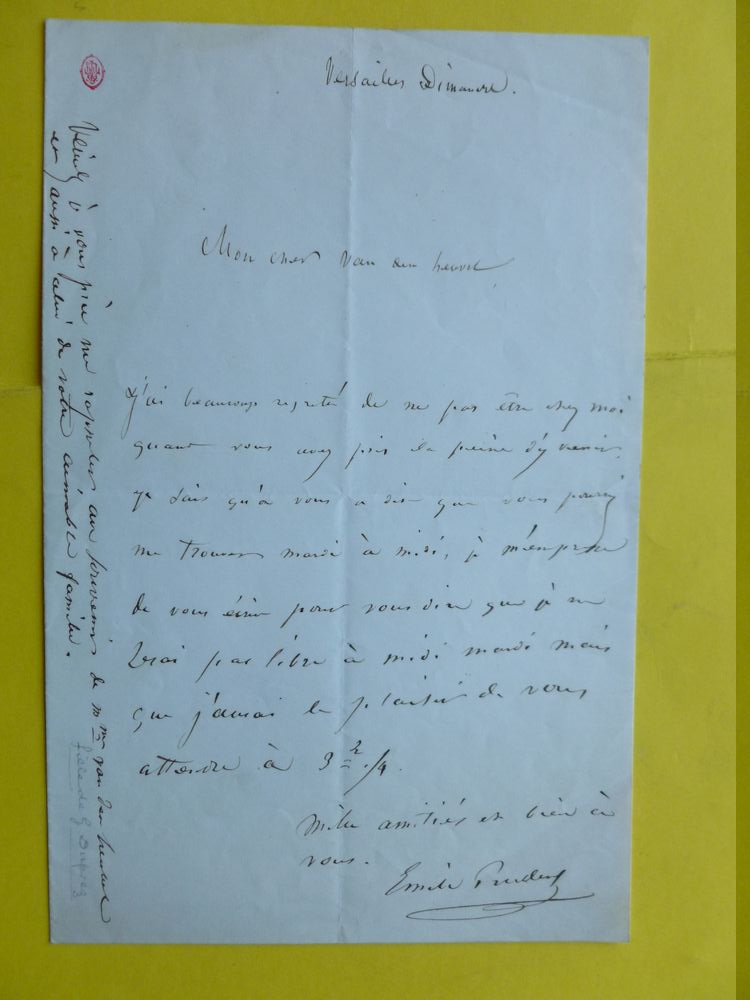 Versailles Dimanche.
Mon cher Van den heuvel
J'ai beaucoup regretté de ne pas être chez moi
quant vous avez pris la peine d'y venir.
je sais qu'on vous a dit que vous pourriez
me trouver mardi à midi, je m'empresse
de vous écrire pour vous dire que je ne
serai pas libre à midi mardi mais
que j'aurai le plaisir de vous
attendre à 3 h. /4.
Mille amitiés et bien à
vous.
Emile Prudent
Veuillez je vous prie me rappeler au souvenir de Mme van den heuvel
et aussi à celui de votre aimable famille.
fille de G Duprez